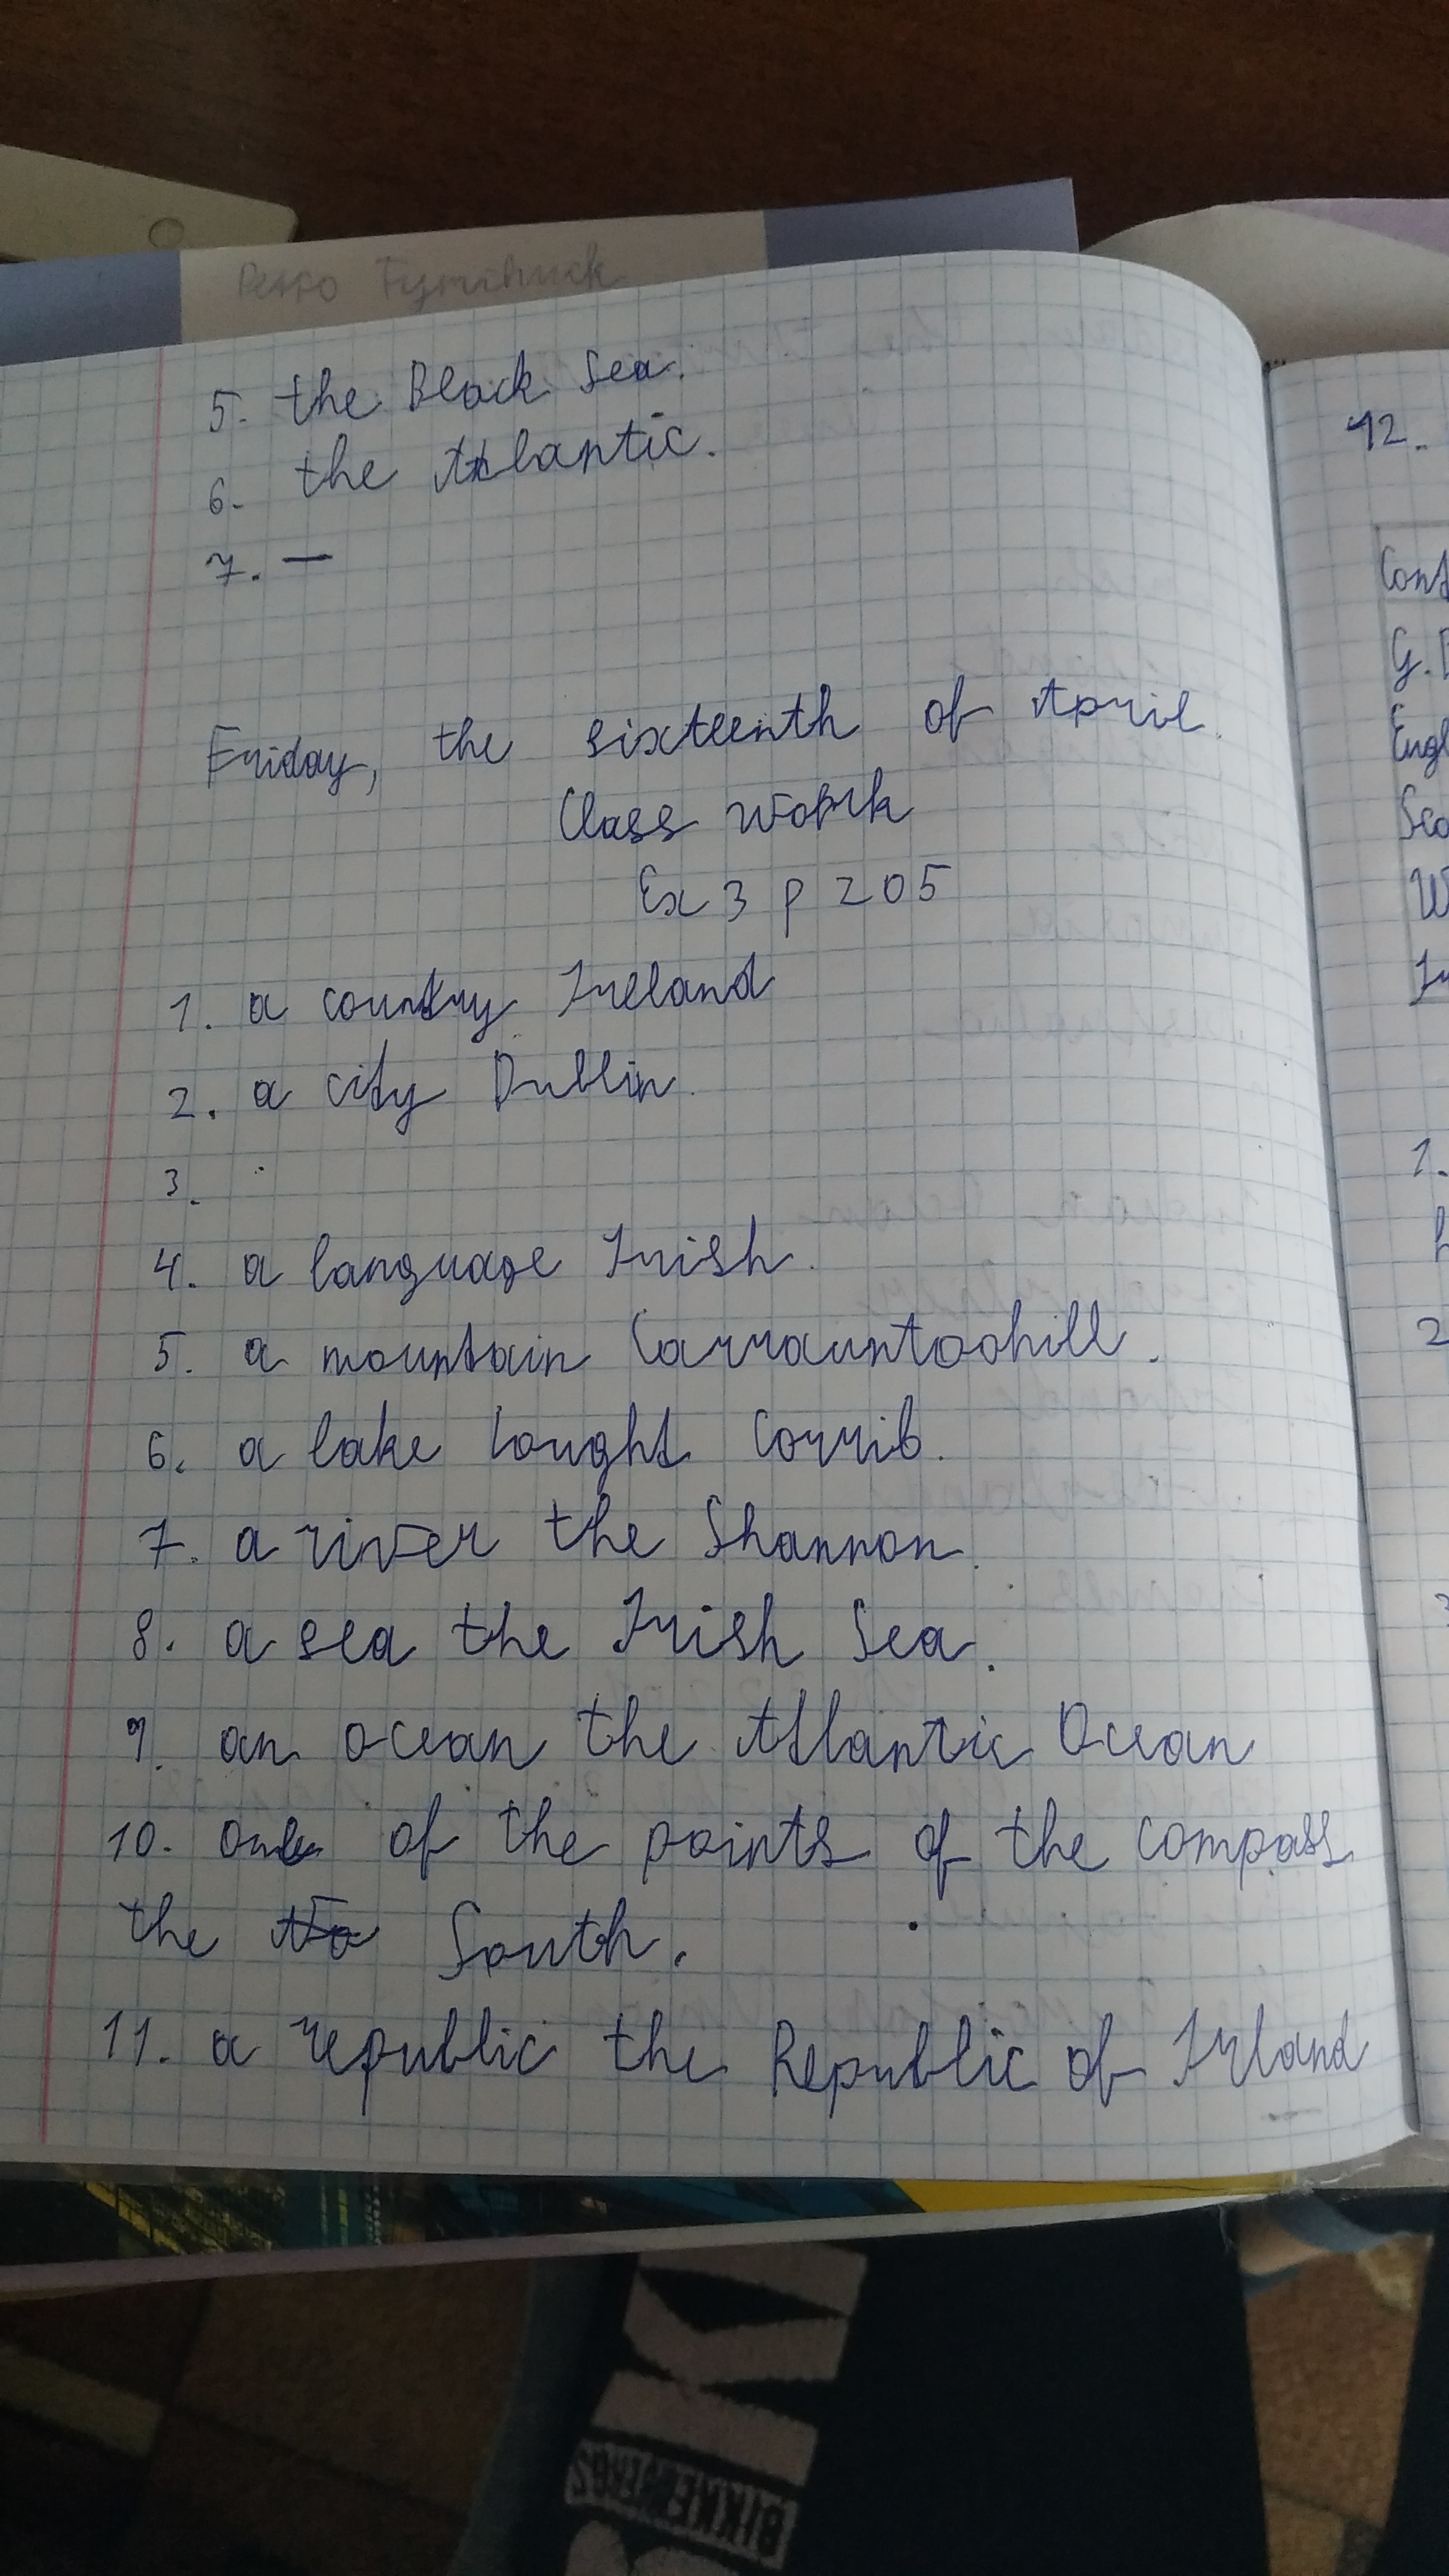 Petro Tymchuck
5. the Black Sea.
6. the Atlantic.
7. —
Friday, the sixteenth of April.
Class work
Ex 3 p 205
1. a country Ireland
2. a city Dublin.
3.
4. a language Irish.
5. a mountain Carrauntoohill.
6. a lake Lought Corrib.
7. a river the Shannon.
8. a sea the Irish Sea.
9. an ocean the Atlantic Ocean
10. one of the points of the compass
the South.
11. a republic the Republic of Irland
12.
G.
1.
2